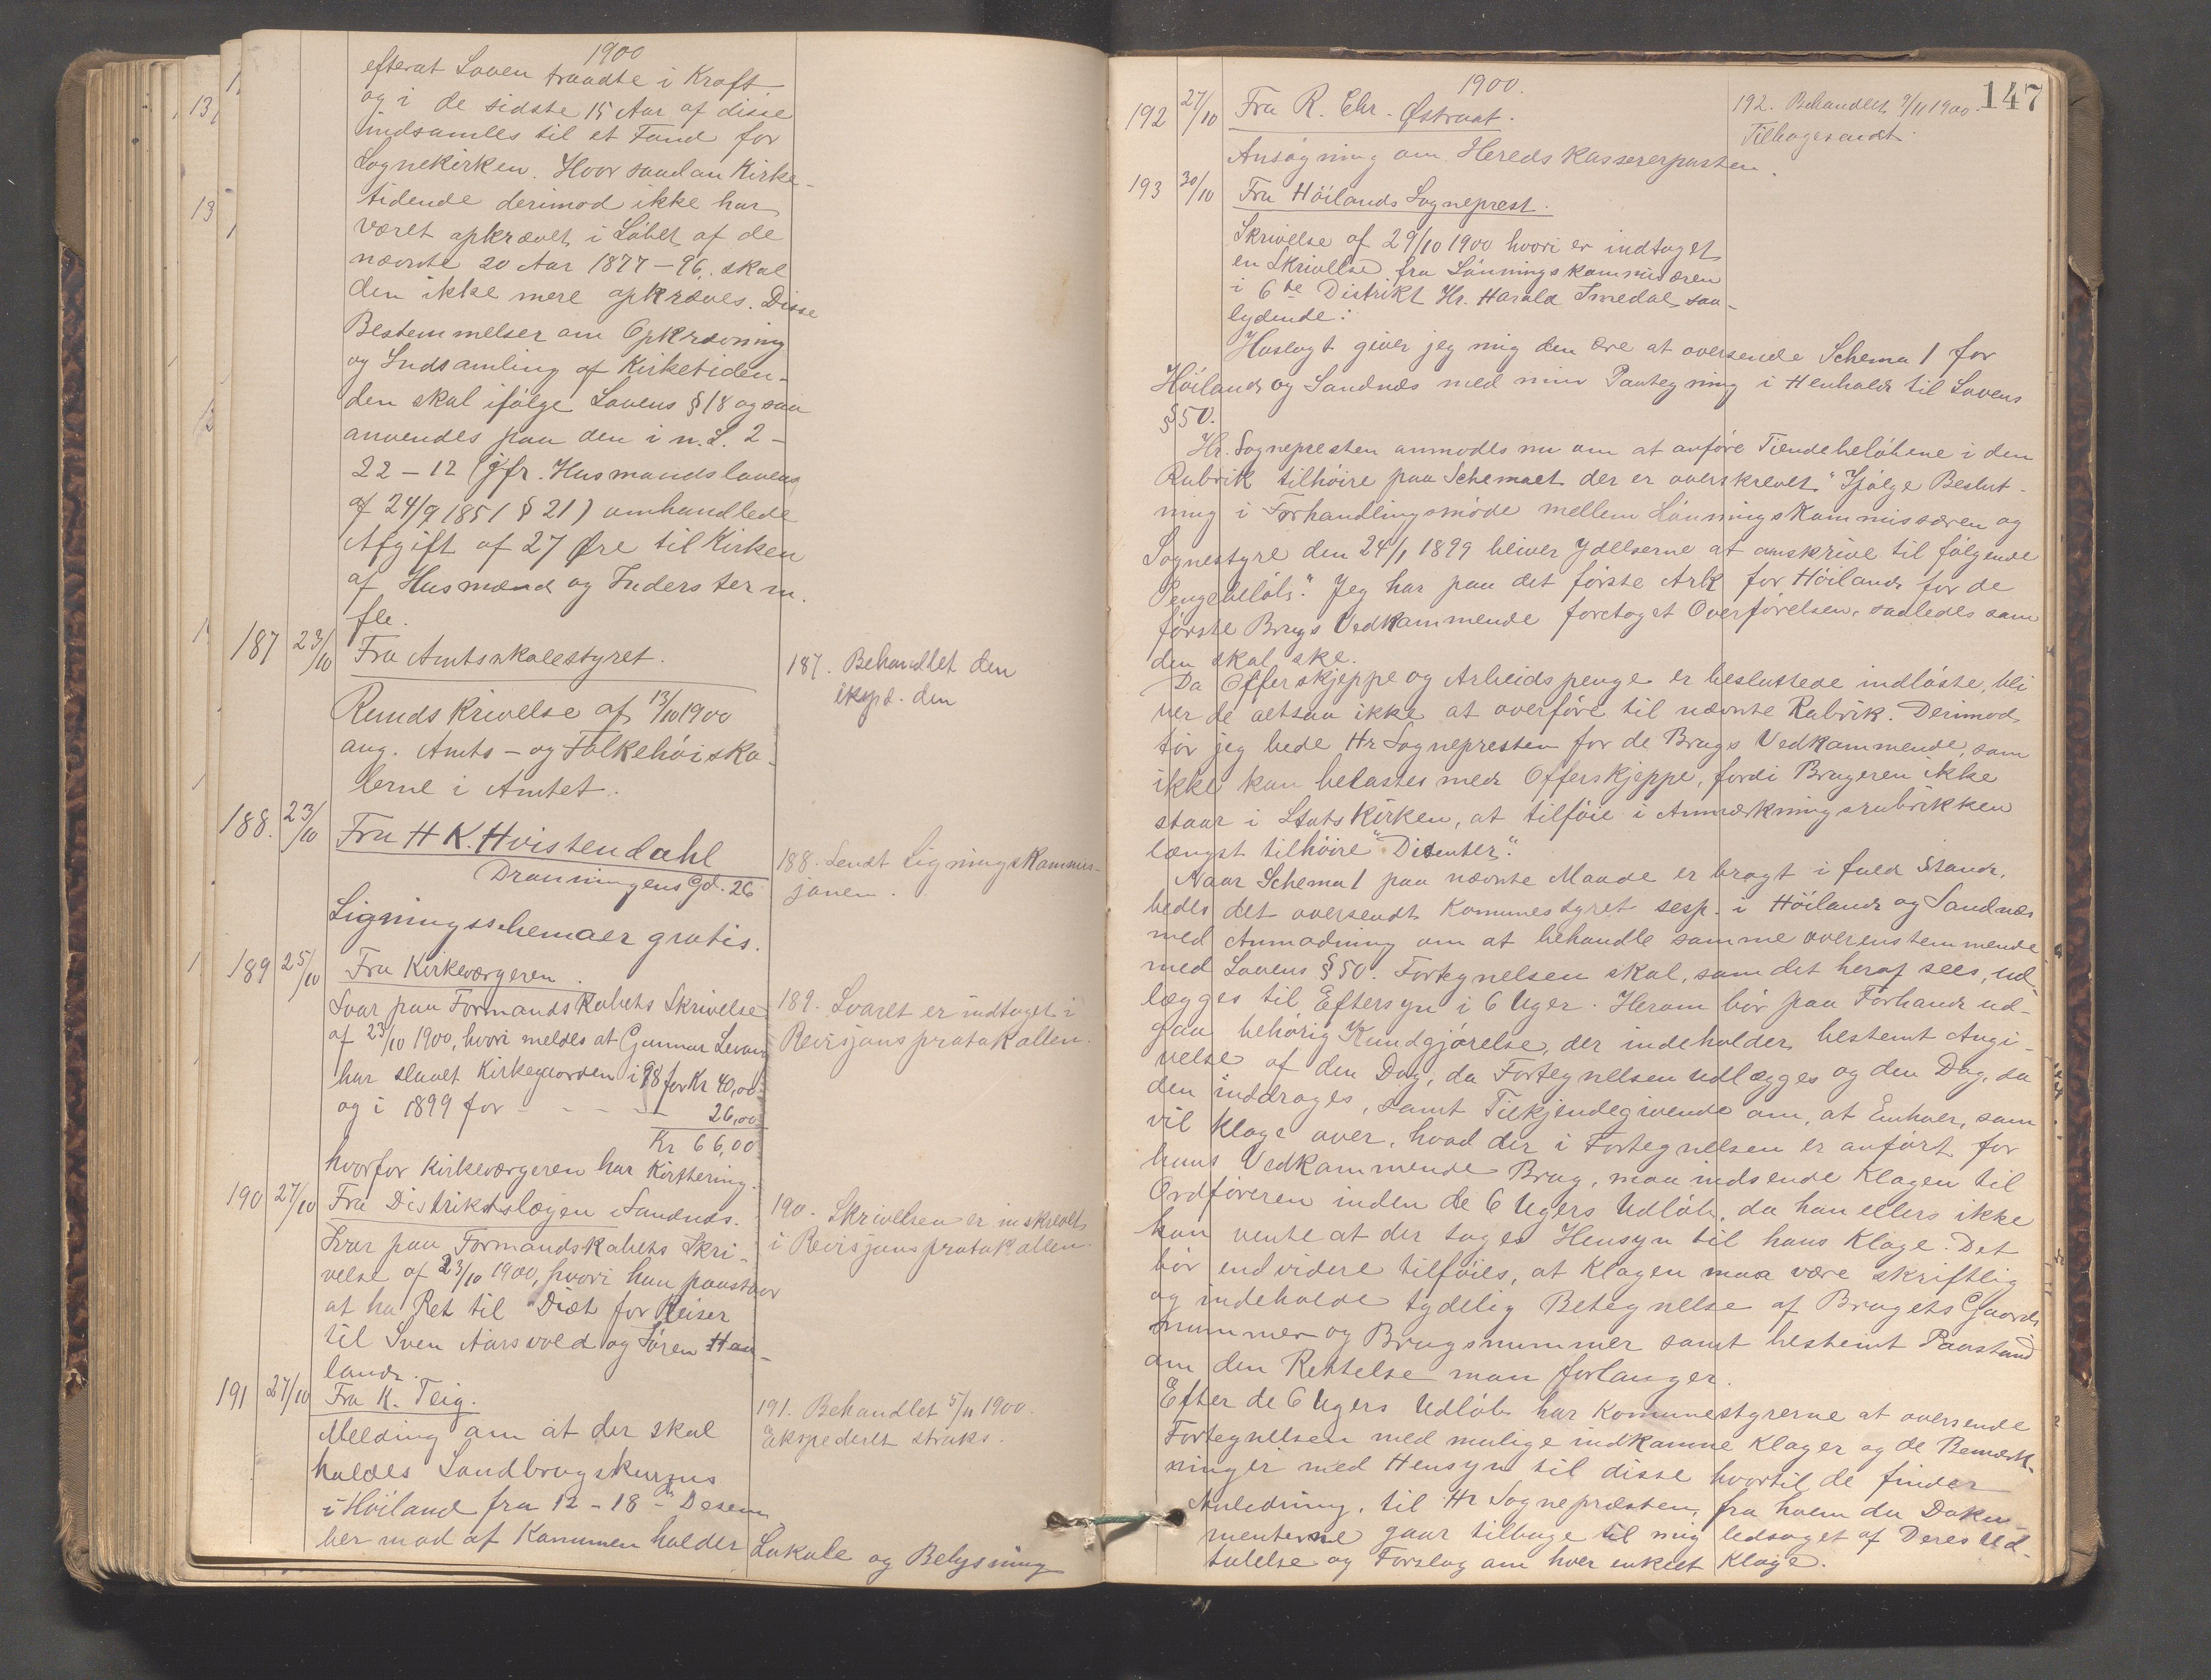 1900
efterat Loven traadte i Kraft
og i de sidste 15 Aar af disse
indsamles til et Fond for
Sognekirken. Hvor saadan Kirke-
tidende derimod ikke har
været opkrævet i Løbet af de
nævnte 20 Aar 1877-96, skal
den ikke mere opkræves. Disse
Bestemmelser om Opkrævning
og Indsamling af Kirketiden-
den skal ifølge Lovens § 18 ogsaa
anvendes paa den i n. L. 2-
22-12 (jfr. Husmandslovens
af 24/9 1851 § 21) omhandlede
Afgift af 27 Øre til Kirken
af Husmænd og Inderster m.
fle.
187 23/10 Fra Amtsskolestyret.
Rundskrivelse af 13/10 1900
ang. Amts- og Folkehøisko-
lerne i Amtet.
187. Behandlet den
eksped. den
188. 23/10 Fra H K. Hvistendahl
Dronningens Gd. 26
Ligningsschemaer gratis.
188. Sendt Ligningskommis-
jonen.
189 25/10 Fra Kirkeværgeren.
Svar paa Formandskabets Skrivelse
af 23/10 1900, hvori meldes at Gunnar Levang
har slaaet Kirkegaarden i 98 for Kr 40,00
og i 1899 for - - - - 26,00
Kr 66,00
hvorfor Kirkeværgeren har Kvittering.
189. Svaret er indtaget i
Revisjonsprotokollen.
190 27/10 Fra Distriktslægen Sandnæs.
Svar paa Formandskabets Skri-
velse af 23/10 1900, hvori han paastaar
at ha Ret til Diæt for Reiser
til Sven Aarsvold og Søren Hau-
land.
190. Skrivelsen er inskrevet
i Revisjonsprotokollen.
191 27/10 Fra K. Teig.
Melding om at der skal
holdes Landbrugskursus
i Høiland fra 12-18 Desem
ber mod at Kommunen holder Lokale og Belysning
191. Behandlet 5/11 1900.
Ekspederet straks.
147
1900.
192 27/10 Fra R. Chr. Østraat.
Ansøgning om Heredskassererposten.
192. Behandlet 9/11 1900.
Tilbagesendt.
193 30/10 Fra Høilands Sogneprest.
Skrivelse af 29/10 1900 hvori er indtaget
en Skrivelse fra Lønningskommisæren
i 6te Distrikt Hr. Harald Smedal saa-
lydende:
Hoslagt giver jeg mig den Ære at oversende Schema 1 for
Høiland og Sandnæs med min Paategning i Henhold til Lovens
§ 50.
Hr. Sognepresten anmodes nu om at anføre Tiendebeløbene i den
Rubrik tilhøire paa Schemaet der er overskrevet "Ifølge Beslut-
ning i Forhandlingsmøde mellem Lønningskommissæren og
Sognestyre den 24/1 1899 bliver Ydelserne at omskrive til følgende
Pengebeløb." Jeg har paa det første Ark for Høiland for de
første Brugs Vedkommende foretaget Overførelsen, saaledes som
den skal ske.
Da Offerskjeppe og Arbeidspenge er besluttede indløste, bli
ver de altsaa ikke at overføre til nævnte Rubrik. Derimod
tør jeg bede Hr Sognepresten for de Brugs Vedkommende, som
ikke kan belastes med Offerskjeppe, fordi Brugeren ikke
staar i Statskirken, at tilføie i Anmærkningsrubrikken
længst tilhøire "Disenter".
Naar Schema 1 paa nævnte Maade er bragt i fuld Stand,
bedes det oversendt Kommunestyret resp. i Høiland og Sandnæs
med Anmodning om at behandle samme overenstemmende
med Lovens § 50. Fortegnelsen skal, som det heraf sees, ud
lægges til Eftersyn i 6 Uger. Herom bør paa Forhand ud-
gaa behørig Kundgjørelse, der indeholder bestemt Angi-
velse af den Dag, da Fortegnelsen udlægges og den Dag, da
den inddrages, samt Tilkjendegivende om, at Enhver, som
vil klage over, hvad der i Fortegnelsen er anført for
hans Vedkammende Brug, maa indsende Klagen til
Ordføreren inden de 6 Ugers Udløb, da han ellers ikke
kan vente at der tages Hensyn til hans Klage. Det
bør endvidere tilføies, at Klagen maa være skriftlig
og indeholde tydelig Betegnelse af Brugets Gaards
nummer og Brugsnummer samt bestemt Paastand
om den Rettelse man forlanger.
Efter de 6 Ugers Udløb har Komunestyrerne at oversende
Fortegnelsen med mulige indkomne Klager og de Bemærk-
ninger med Hensyn til disse hvortil de finder
Anledning, til Hr Sognepræsten, fra hvem da Doku-
menterne gaar tilbage til mig ledsaget af Deres Ud-
talelse og Forslag om hver enkelt Klage.